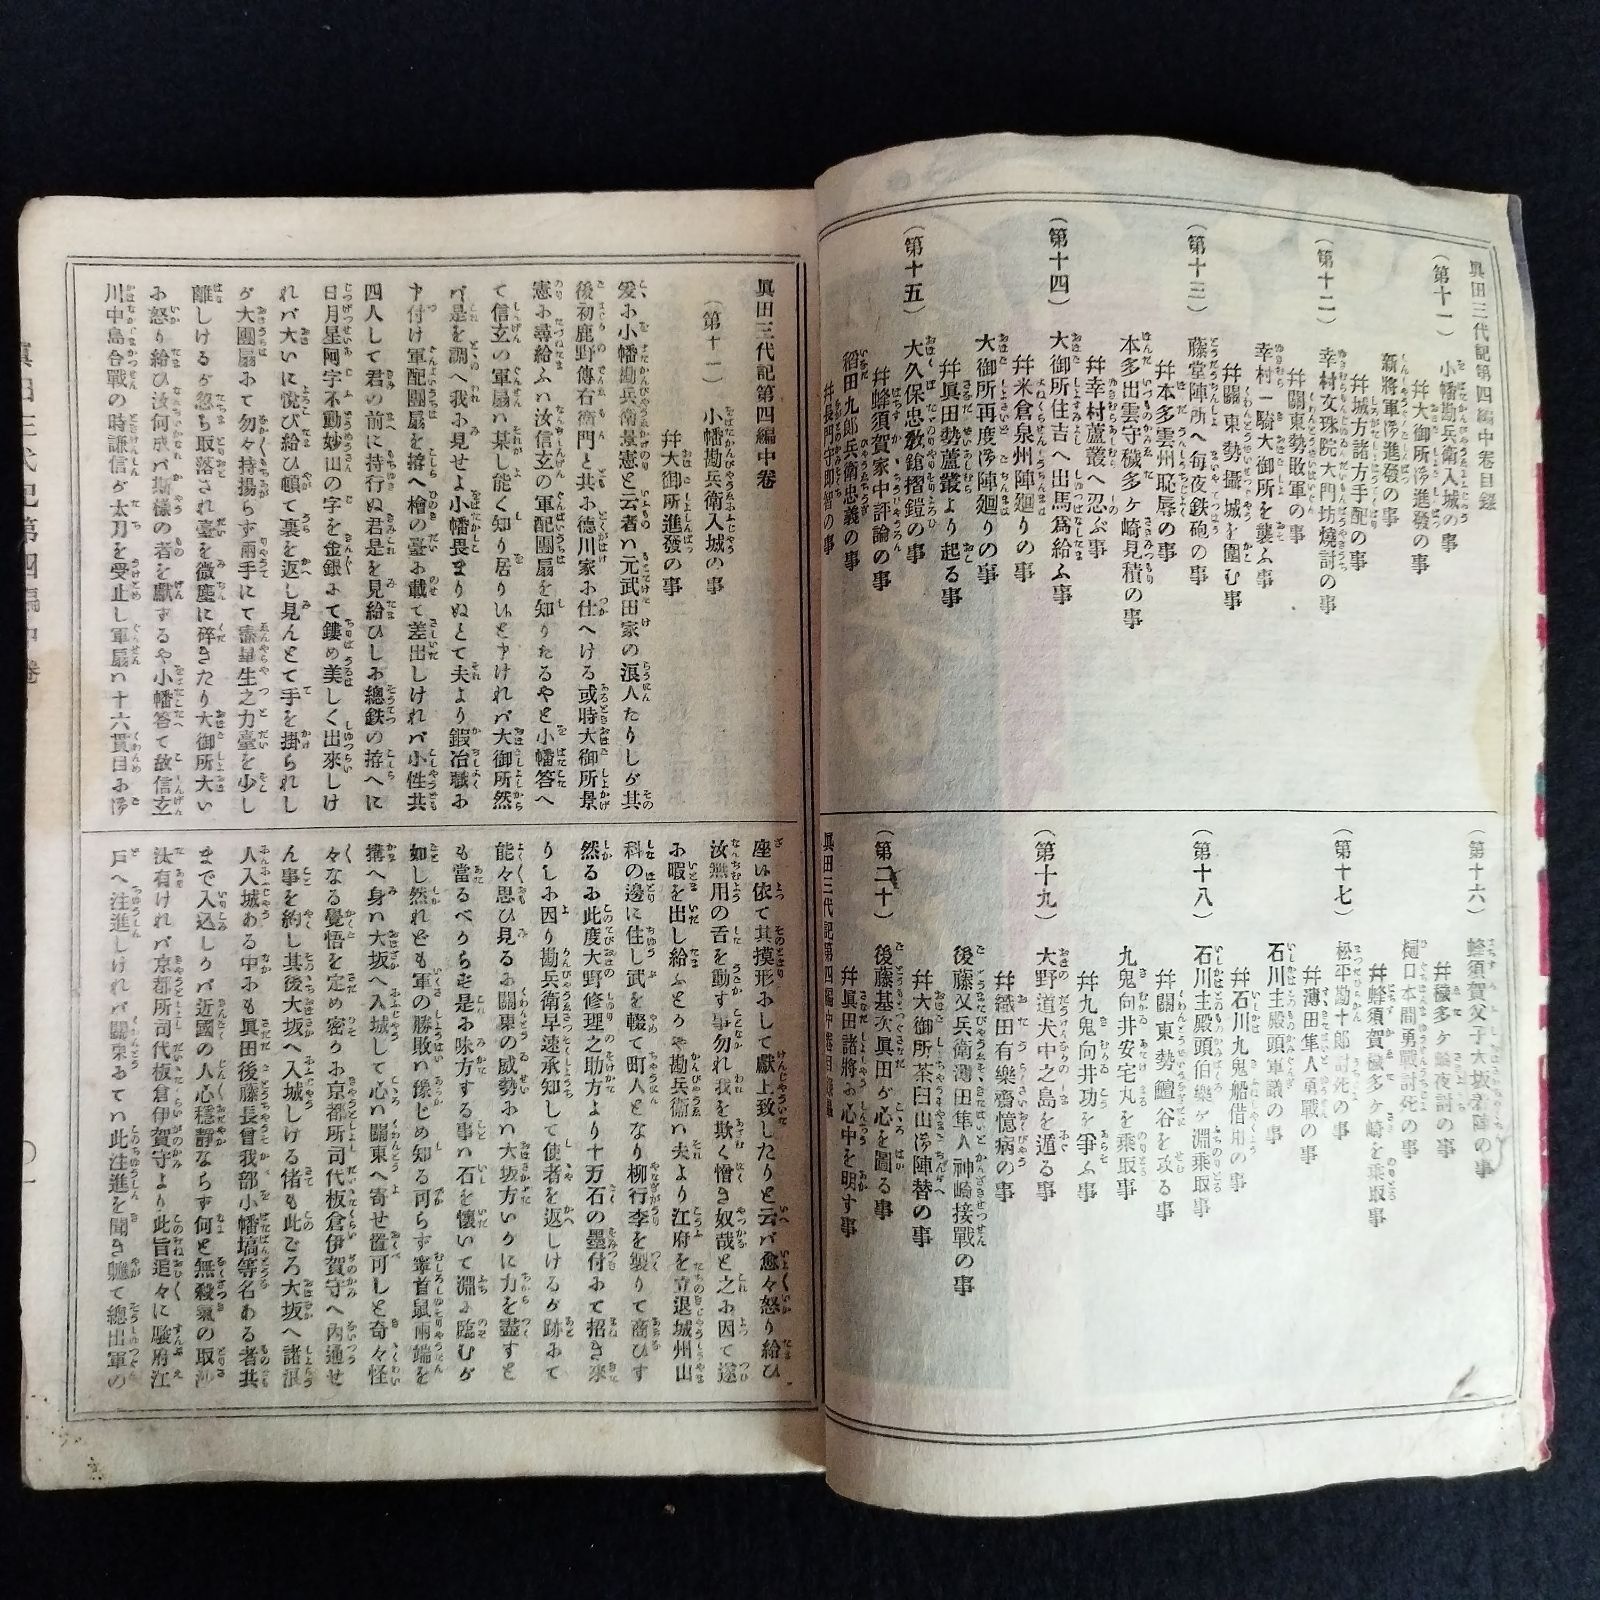 眞田三代記第四編中卷目錄
(第十一)
小幡勘兵衛入城の事
幷大御所御進發の事
新將軍御進發の事
幷城方諸方手配の事
(第十二)
幸村文珠院大門坊燒討の事
幷關東勢敗軍の事
幸村一騎大御所を襲ふ事
幷關東勢攝城を圍む事
(第十三)
藤堂陣所へ毎夜鉄砲の事
幷本多雲州恥辱の事
本多出雲守穢多ヶ崎見積の事
幷幸村蘆叢へ忍ぶ事
(第十四)
大御所住吉へ出馬爲給ふ事
幷米倉泉州陣廻りの事
大御所再度御陣廻りの事
幷眞田勢蘆叢より起る事
(第十五)
大久保忠敎鎗摺鎧の事
幷蜂須賀家中評論の事
稻田九郎兵衛忠義の事
幷長門守即智の事
(第十六)
蜂須賀父子大坂着陣の事
幷穢多ヶ崎夜討の事
樋口本間勇戰討死の事
幷蜂須賀穢多ヶ崎を乘取事
(第十七)
松平勘十郎討死の事
幷薄田隼人勇戰の事
石川主殿頭軍議の事
幷石川九鬼船借用の事
(第十八)
石川主殿頭伯樂ヶ淵乘取事
幷關東勢鱣谷を攻る事
九鬼向井安宅丸を乘取事
幷九鬼向井功を爭ふ事
(第十九)
大野道犬中之島を遁る事
幷織田有樂齋臆病の事
後藤又兵衛薄田隼人神崎接戰の事
幷大御所茶臼山御陣替の事
(第二十)
後藤基次眞田が心を圖る事
幷眞田諸將お心中を明す事
眞田三代記第四編中卷目錄
眞田三代記第四編中卷
(第十一)
小幡勘兵衛入城の事
幷大御所進發の事
爰お小幡勘兵衛景憲と云者ハ元武田家の浪人たりしが其
後初鹿野傳右衛門と共お德川家お仕へける或時大御所景
憲お尋給ふハ汝信玄の軍配團扇を知りたるやと小幡答へ
て信玄の軍扇ハ某し能く知り居りいと申けれバ大御所然
バ是を調へ我お見せよ小幡畏まりぬとて夫より鍜冶職お
申付け軍配團扇を拵へ檜の臺お載て差出しけれバ小性共
四人して君の前に持行ぬ君是を見給ひしお總鉄の拵へに
日月星阿字不動妙山の字を金銀おて鏤め美しく出來しけ
れバ大いに悅び給ひ頓て裏を返し見んとて手を掛られし
が大團扇おて勿々持揚らず兩手にて生之力臺を少し
離しけるが忽ち取落され臺を微塵に碎きたり大御所大い
お怒り給ひ汝何成バ斯樣の者を獻ずるや小幡答て故信玄
川中島合戰の時謙信が太刀を受止し軍扇ハ十六貫目お御
座い依て其摸形おして獻上致したりと云バ愈々怒り給ひ
汝無用の舌を動す事勿れ我を欺く憎き奴哉と之お因て遂
お暇を出し給ふところや勘兵衛ハ夫より江府を立退城州山
科の邊に住し武を輟て町人となり柳行李を製りて商ひす
然るお此度大野修理之助方より十万石の墨付おて招き來
りしお因り勘兵衛早速承知して使者を返しけるが跡おて
能々思ひ見るお關東の威勢お大坂方いかに力を盡すと
も當るべからを是お味方する事ハ石を懷いて淵お臨むが
如し然れども軍の勝敗ハ豫じめ知る可らず寧首鼠兩端を
搆へ身ハ大坂へ入城して心ハ關東へ寄せ置可しと奇々怪
々なる覺悟を定め密かお京都所司代板倉伊賀守へ內通せ
ん事を約し其後大坂へ入城しける偖も此ごろ大坂へ諸浪
人入城ある中おも眞田後藤長曾我部小幡塙等名ある者共
まで入込しかバ近國の人心穩靜ならず何と無殺氣の取沙
汰有けれバ京都所司代板倉伊賀守より此旨追々に駿府江
戶へ注進しけれバ關東おてい此注進を聞き軈て總出軍の
眞田三代記第四編中卷
〇一